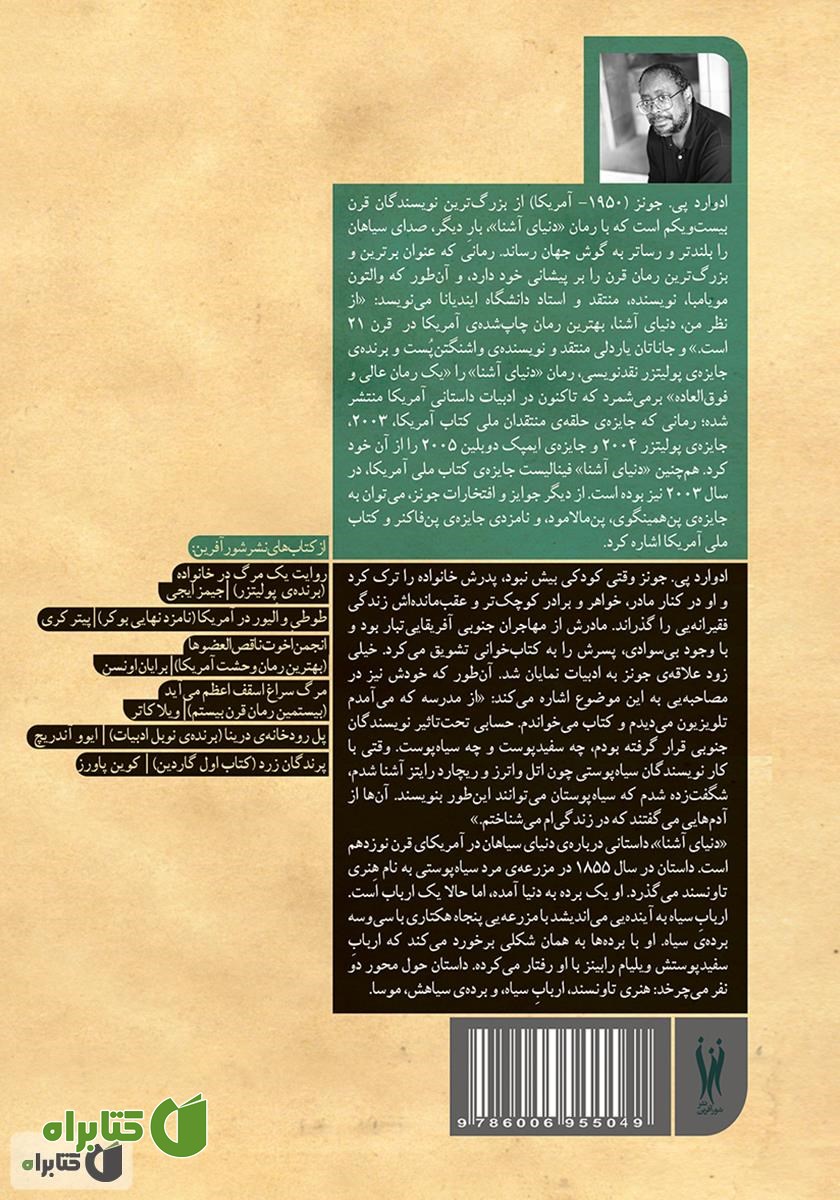 ادوارد پی. جونز (۱۹۵۰- آمریکا) از بزرگ‌ترین نویسندگان قرن
بیست‌ویکم است که با رمان «دنیای آشنا»، بار دیگر، صدای سیاهان
را بلندتر و رساتر به گوش جهان رساند. رمانی که عنوان برترین و
بزرگ‌ترین رمان قرن را بر پیشانی خود دارد، و آن‌طور که والتون
مویامبا، نویسنده، منتقد و استاد دانشگاه ایندیانا می‌نویسد: «از
نظر من، دنیای آشنا، بهترین رمان چاپ‌شده‌ی آمریکا در قرن ۲۱
است.» و جاناتان یاردلی منتقد و نویسنده‌ی واشنگتن‌پُست و برنده‌ی
جایزه‌ی پولیتزر نقدنویسی، رمان «دنیای آشنا» را «یک رمان عالی و
فوق‌العاده» برمی‌شمرد که تاکنون در ادبیات داستانی آمریکا منتشر
شده؛ رمانی که جایزه‌ی حلقه‌ی منتقدان ملی کتاب آمریکا، ۲۰۰۳،
جایزه‌ی پولیتزر ۲۰۰۴ و جایزه‌ی ایمپک دوبلین ۲۰۰۵ را از آن خود
کرد. هم‌چنین «دنیای آشنا» فینالیست جایزه‌ی کتاب ملی آمریکا، در
سال ۲۰۰۳ نیز بوده است. از دیگر جوایز و افتخارات جونز، می‌توان به
جایزه‌ی پن‌همینگوی، پن‌مالامود، و نامزدی جایزه‌ی پن‌فاکنر و کتاب
ملی آمریکا اشاره کرد.
ادوارد پی. جونز وقتی کودکی بیش نبود، پدرش خانواده را ترک کرد
و او در کنار مادر، خواهر و برادر کوچک‌تر و عقب‌مانده‌اش زندگی
فقیرانه‌یی را گذراند. مادرش از مهاجران جنوبی آفریقایی‌تبار بود و
با وجود بی‌سوادی، پسرش را به کتاب‌خوانی تشویق می‌کرد. خیلی
زود علاقه‌ی جونز به ادبیات نمایان شد. آن‌طور که خودش نیز در
مصاحبه‌یی به این موضوع اشاره می‌کند: «از مدرسه که می‌آمدم
تلویزیون می‌دیدم و کتاب می‌خواندم. حسابی تحت‌تاثیر نویسندگان
جنوبی قرار گرفته بودم، چه سفیدپوست و چه سیاه‌پوست. وقتی با
کار نویسندگان سیاه‌پوستی چون اتل واترز و ریچارد رایتز آشنا شدم،
شگفت‌زده شدم که سیاه‌پوستان می‌توانند این‌طور بنویسند. آن‌ها از
آدم‌هایی می‌گفتند که در زندگی‌ام می‌شناختم.»
«دنیای آشنا»، داستانی درباره‌ی دنیای سیاهان در آمریکای قرن نوزدهم
است. داستان در سال ۱۸۵۵ در مزرعه‌ی مرد سیاه‌پوستی به نام هِنری
تاونسند می‌گذرد. او یک برده به دنیا آمده، اما حالا یک ارباب است.
اربابِ سیاه به آینده‌یی می‌اندیشد با مزرعه‌یی پنجاه هکتاری با سی‌وسه
برده‌ی سیاه. او با برده‌ها به همان شکلی برخورد می‌کند که اربابِ
سفیدپوستش ویلیام رابینز با او رفتار می‌کرده. داستان حول محور دو
نفر می‌چرخد: هنری تاونسند، اربابِ سیاه، و برده‌ی سیاهش، موسا.
از کتاب‌های نشر شورآفرین:
روایت یک مرگ در خانواده
(برنده‌ی پولیتزر) | جیمز ایجی
طوطی و الیور در آمریکا (نامزد نهایی بوکر) | پیتر کری
انجمن اخوت ناقص‌العضوها
(بهترین رمان وحشت آمریکا) | برایان اونسن
مرگ سراغ اسقف اعظم می‌آید
(بیستمین رمان قرن بیستم) | ویلا کاتر
پل رودخانه‌ی درینا (برنده‌ی نوبل ادبیات) | ایوو آندریچ
پرندگان زرد (کتاب اول گاردین) | کوین پاورز
9 786006 955049
نشر
شورآفرین
کتابراه
کتابراه